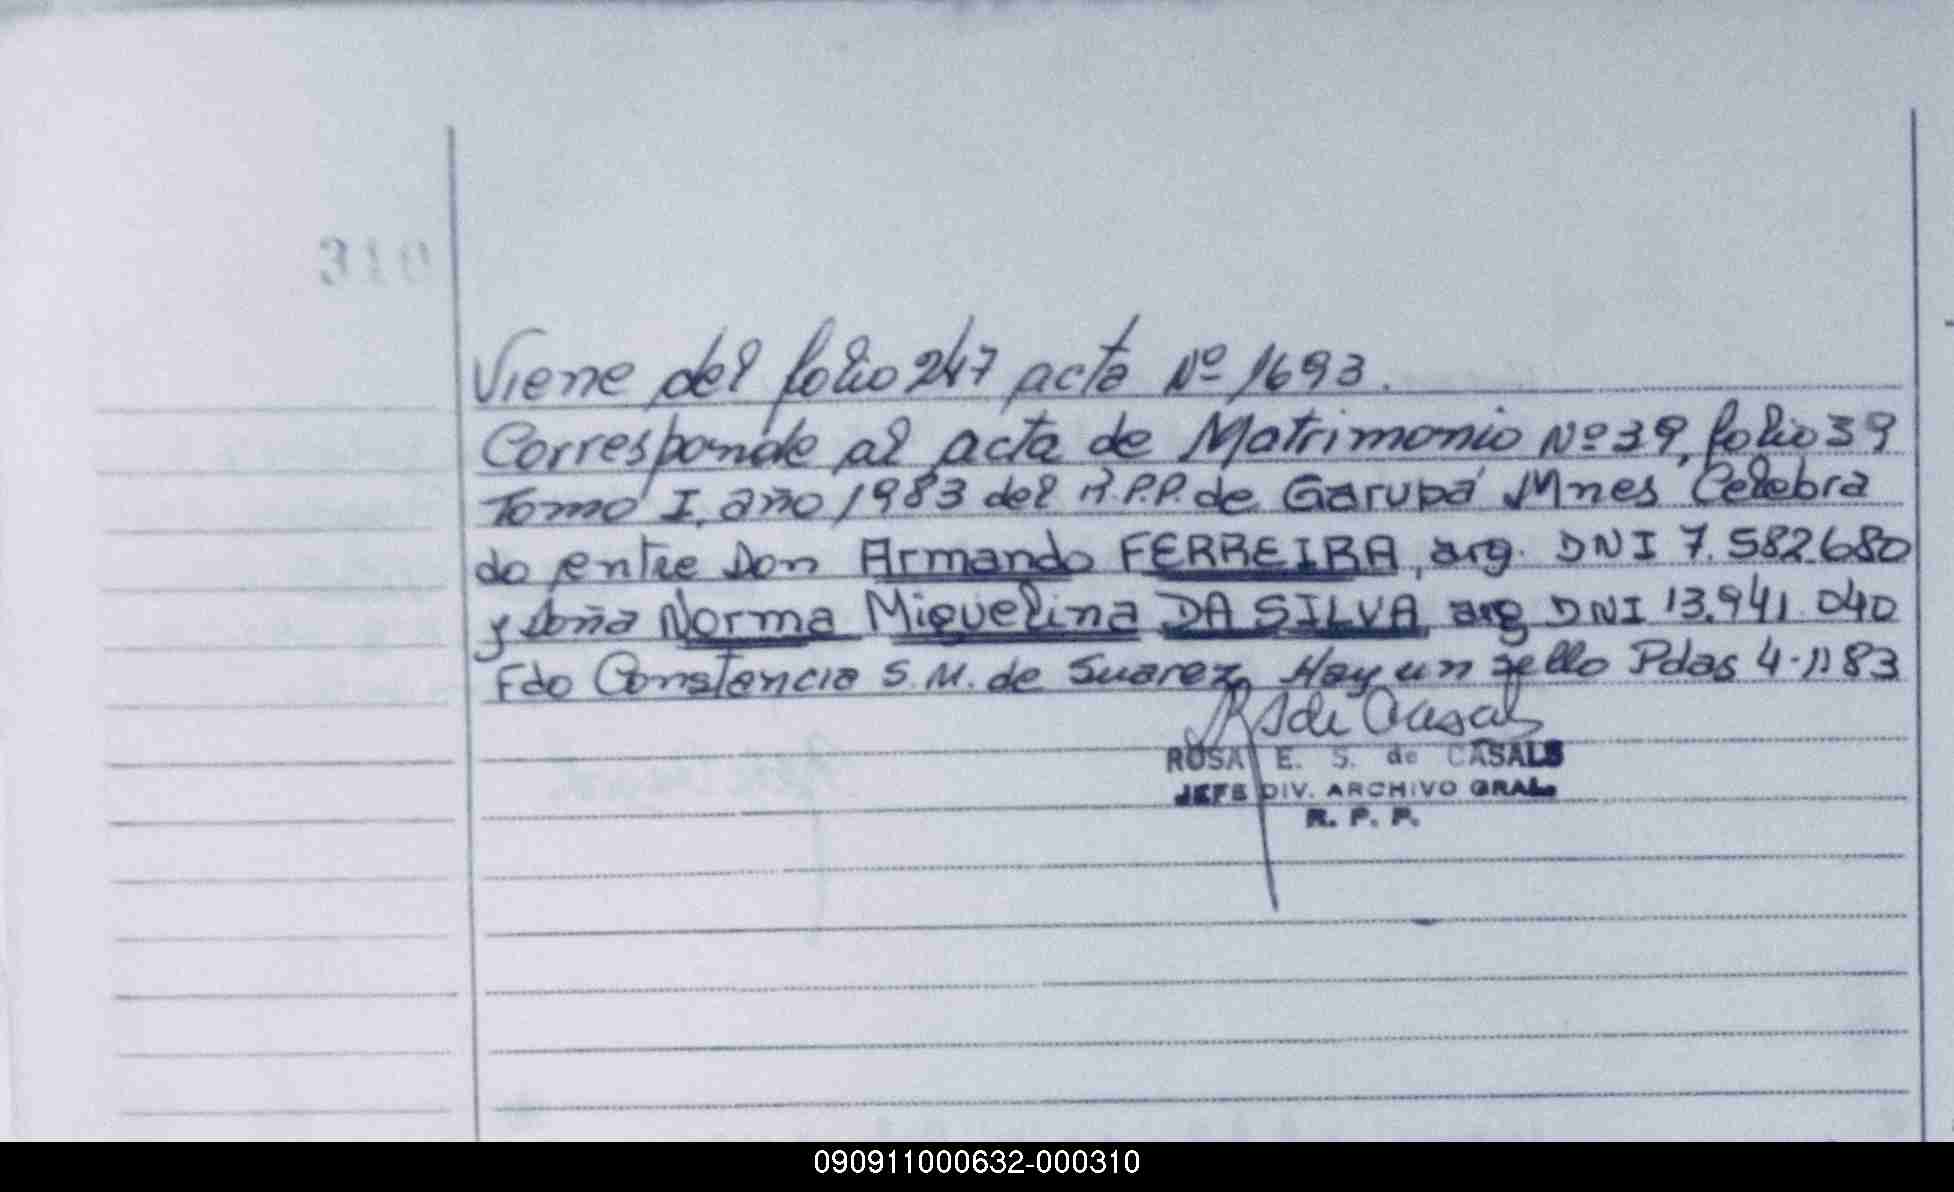 310
Viene del folio 247 acta Nº 1693.
Corresponde al acta de Matrimonio Nº 39, folio 39
Tomo I, año 1983 del R.P.P. de Garupá Mnes Celebra
do entre Don Armando FERREIRA, arg. DNI 7.582.680
y doña Norma Miquelina DA SILVA arg DNI 13.941.040
Fdo Constancia S.M. de Suarez Hay un sello Pdas 4-1183
RS de Casals
ROSA E. S. de CASALS
JEFE DIV. ARCHIVO GRAL.
R. P. P.
090911000632-000310